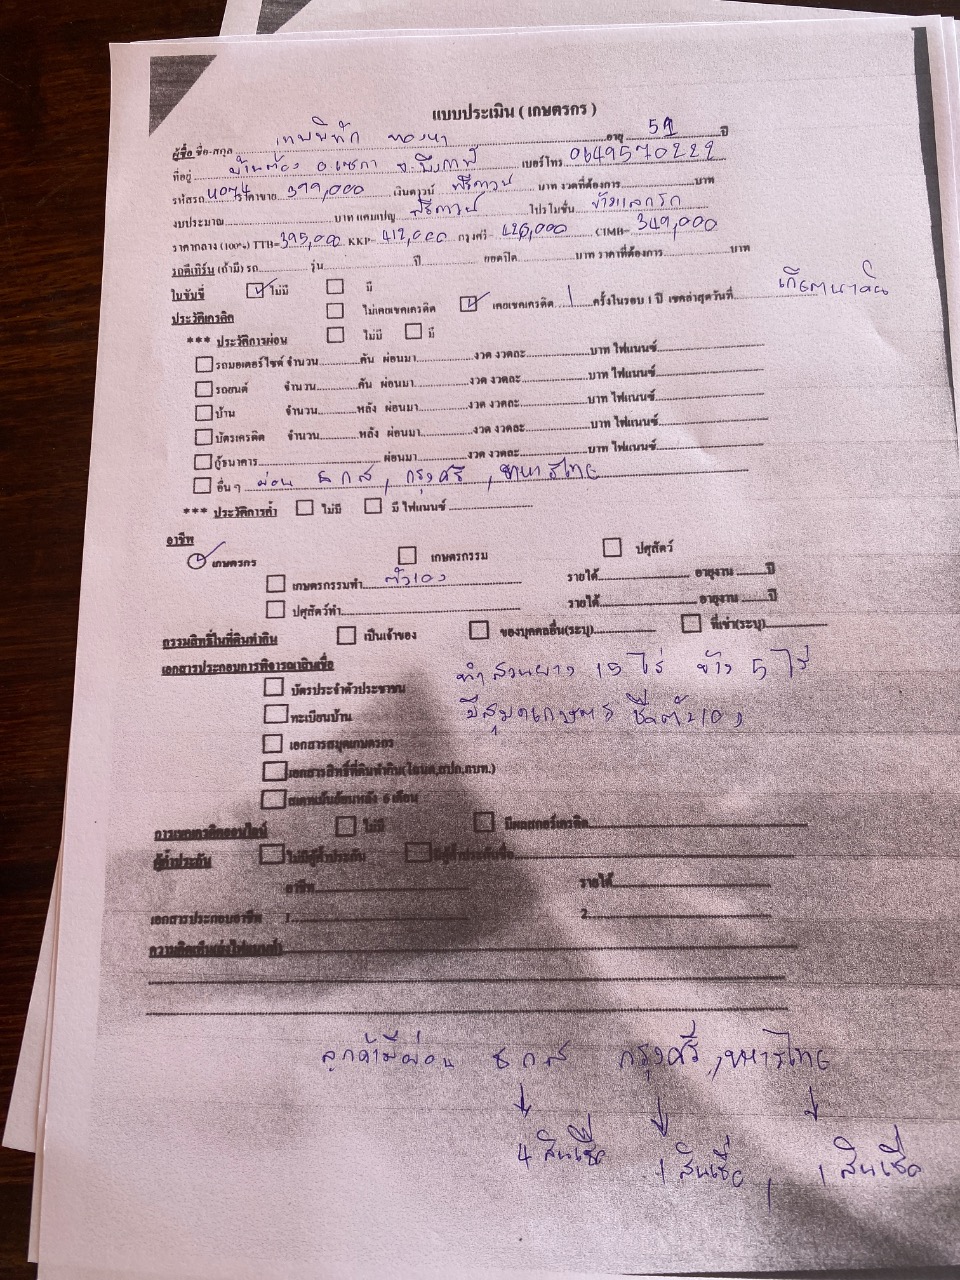 แบบประเมิน ( เกษตรกร )
ผู้ซื้อ ชื่อ-สกุล เทพพิทัก ทองนา อายุ 51 ปี
ที่อยู่ บ้านต้อง อ.เซกา จ.บึงกาฬ เบอร์โทร 0649570229
รหัสรถ 4074 ราคาขาย 399,000 เงินดาวน์ ฟรีดาวน์ บาท งวดที่ต้องการ บาท
งบประมาณ บาท แคมเปญ ฟรีดาวน์ โปรโมชั่น ข้าวแลกรถ
ราคากลาง (100%) TTB= 395,000 KKP= 412,000 กรุงศรี= 420,000 CIMB= 349,000
รถตีเทิร์น (ถ้ามี) รถ รุ่น ปี ยอดปิด บาท ราคาที่ต้องการ บาท
ใบขับขี่ ไม่มี มี
ประวัติเครดิต ไม่เคยเชคเครดิต เคยเชคเครดิต 1 ครั้งในรอบ 1 ปี เชคล่าสุดวันที่ เกียรตินาคิน
*** ประวัติการผ่อน ไม่มี มี
รถมอเตอร์ไซด์ จำนวน คัน ผ่อนมา งวด งวดละ บาท ไฟแนนซ์
รถยนต์ จำนวน คัน ผ่อนมา งวด งวดละ บาท ไฟแนนซ์
บ้าน จำนวน หลัง ผ่อนมา งวด งวดละ บาท ไฟแนนซ์
บัตรเครดิต จำนวน หลัง ผ่อนมา งวด งวดละ บาท ไฟแนนซ์
กู้ธนาคาร ผ่อนมา งวด งวดละ บาท ไฟแนนซ์
อื่น ๆ ผ่อน ธกส , กรุงศรี , ทหารไทย
*** ประวัติการค้ำ ไม่มี มี ไฟแนนซ์
อาชีพ
เกษตรกร เกษตรกรรม ปศุสัตว์
เกษตรกรรมทำ ตัวเอง รายได้ อายุงาน ปี
ปศุสัตว์ทำ รายได้ อายุงาน ปี
กรรมสิทธิ์ในที่ดินทำกิน เป็นเจ้าของ ของบุคคลอื่น(ระบุ) ที่เช่า(ระบุ)
เอกสารประกอบการพิจารณาสินเชื่อ
ทำสวนยาง 15 ไร่ ข้าว 5 ไร่
บัตรประจำตัวประชาชน
ทะเบียนบ้าน มีสมุดเกษตร ชื่อตัวเอง
เอกสารสมุดเกษตรกร
เอกสารสิทธิ์ที่ดินทำกิน(โฉนด,สปก,ภบท.)
สเตทเม้นย้อนหลัง 6 เดือน
ไม่มี มีผลสกอร์เครดิต
ผู้ค้ำประกัน ไม่มีผู้ค้ำประกัน มีผู้ค้ำประกันชื่อ
อาชีพ รายได้
เอกสารประกอบอาชีพ 1. 2.
ลูกค้ามีผ่อน ธกส กรุงศรี , ทหารไทย
4 สินเชื่อ 1 สินเชื่อ , 1 สินเชื่อ